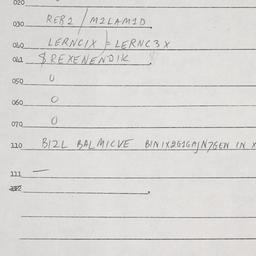 020
030 REB1 / M2LAM1D
040 LERNC1X = LERNC3X
041 $REXENENDIK
050 0
060 0
070 0
110 BI2L BALMICVE
111 —
112